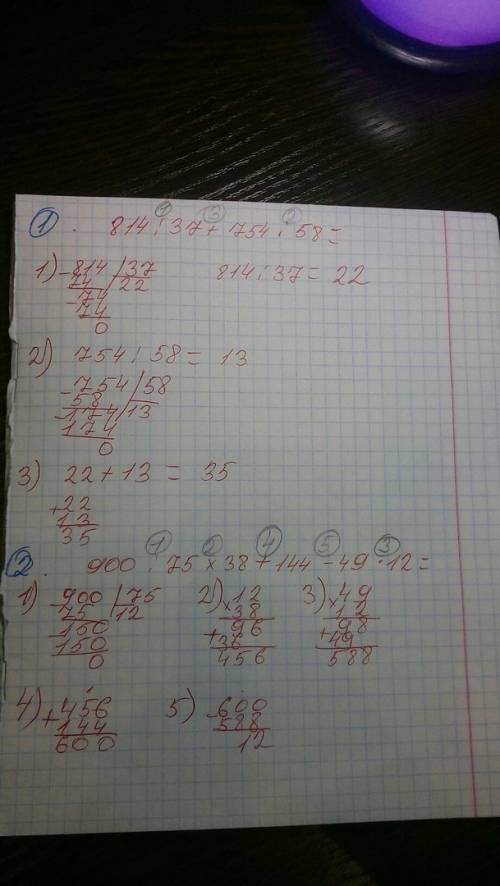 ① ② ③
1. 814 : 37 + 754 : 58 =
1) - 814 | 37    814 : 37 = 22
74 | 22
- 74
74
0
2) 754 : 58 = 13
- 754 | 58
58 | 13
- 174
174
0
3) 22 + 13 = 35
+ 22
13
35
① ② ④ ⑤ ③
2. 900 : 75 × 38 + 144 - 49 · 12 =
1) - 900 | 75    2) × 12    3) × 49
75 | 12    38    12
- 150    96    98
150    + 36    + 49
0    456    588
4) + 456    5) - 600
144    588
600    12